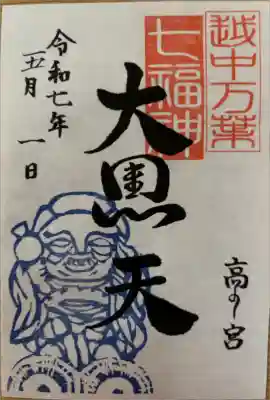 越中万葉
七福神
大黒天
令和七年
五月一日
高の宮